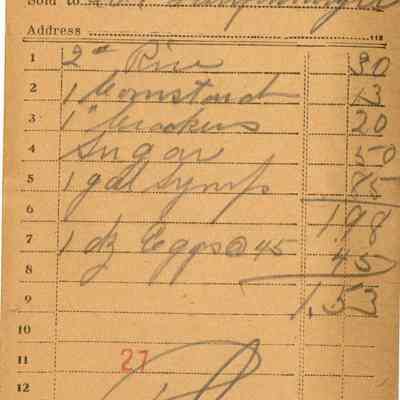 Sold to
Address
1 2# Rice 30
2 1 Cornstarch 13
3 1" Crackers 20
4 Sugar 50
5 1 gal Syrup 85
6 1.98
7 1 dz Eggs @ 45
8 45
9 1.53
10
11 27
12